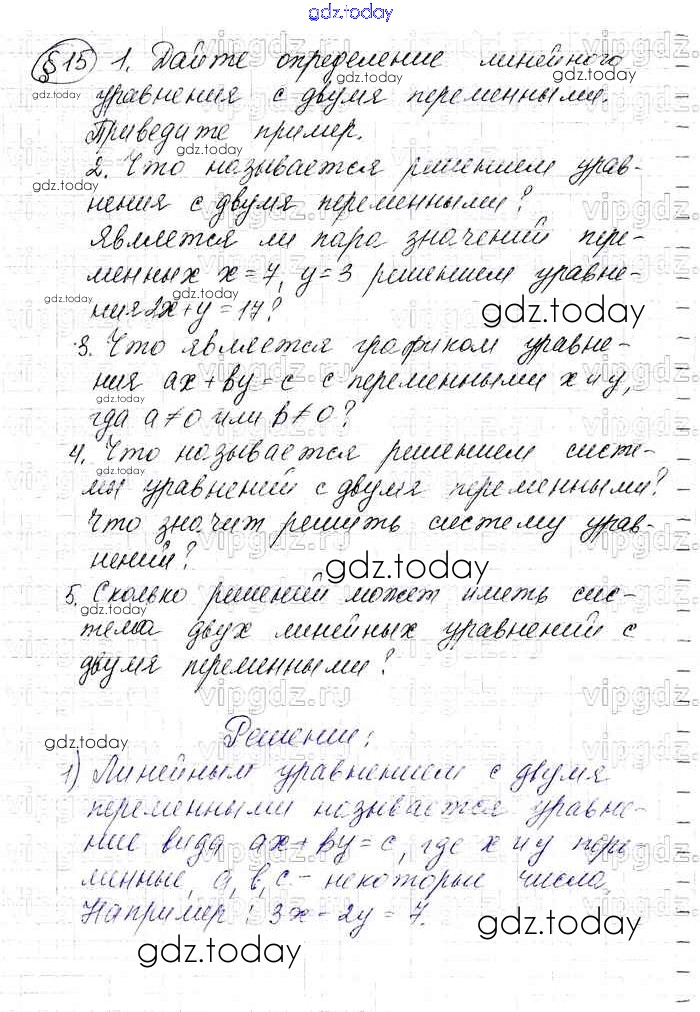 gdz.today
§15 1. Дайте определение линейного
уравнения с двумя переменными.
Приведите пример.
2. Что называется решением урав-
нения с двумя переменными?
Является ли пара значений пере-
менных x=7, y=3 решением уравне-
ния 2x+y=17?
3. Что является графиком уравне-
ния ax+by=c с переменными x и y,
где a≠0 или b≠0?
4. Что называется решением систе-
мы уравнений с двумя переменными?
Что значит решить систему урав-
нений?
gdz.today
5. Сколько решений может иметь сис-
тема двух линейных уравнений с
двумя переменными?
Решение:
1) Линейным уравнением с двумя
переменными называется уравне-
ние вида ax+by=c, где x и y пере-
менные, a, b, c - некоторые числа.
Например: 3x-2y=7.
gdz.today